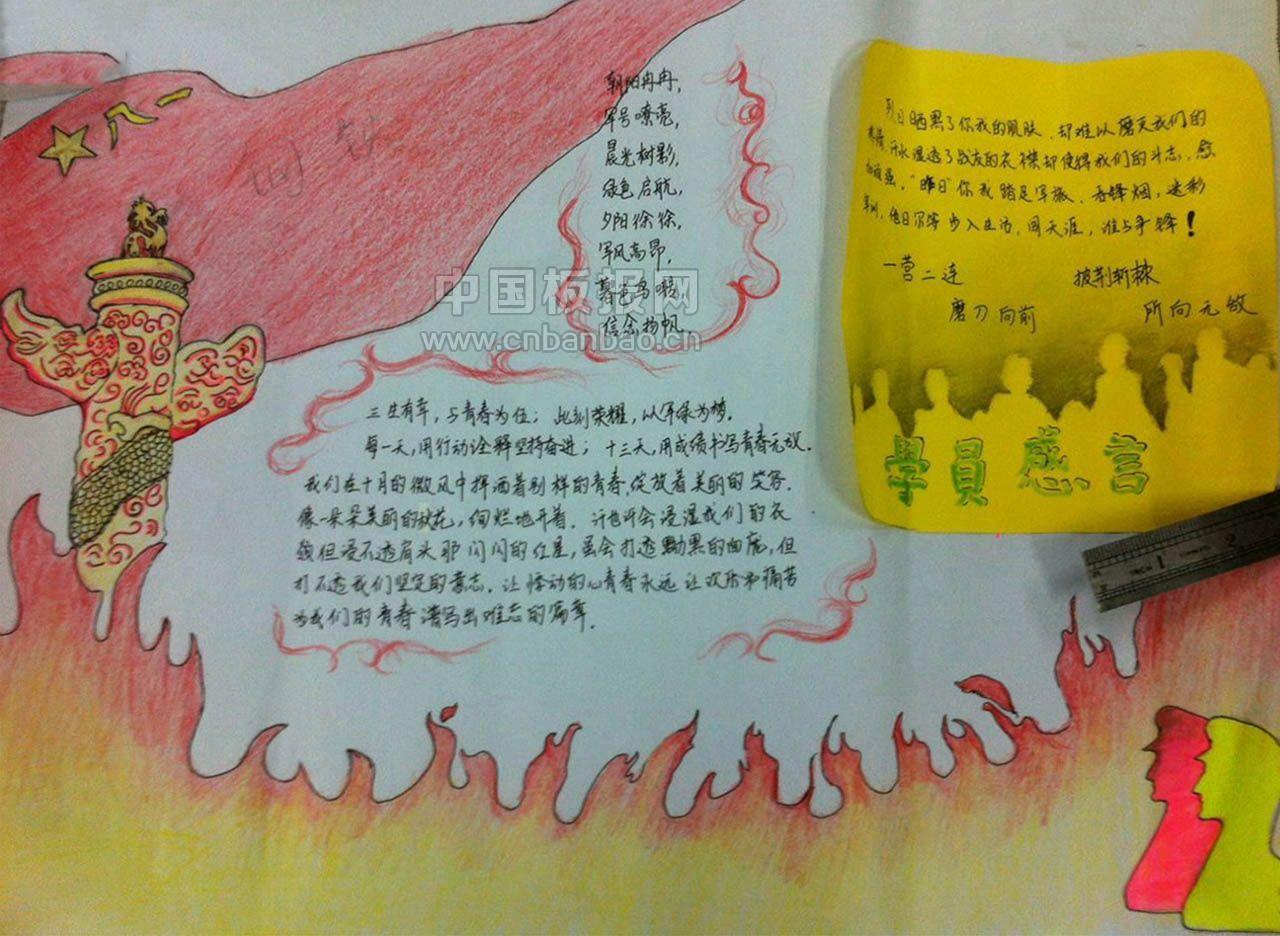 八一
朝阳冉冉，
军号嘹亮，
晨光树影，
绿色启航，
夕阳徐徐，
军风高昂，
暮色鸟
信念扬帆．
中国板报网
www.cnbanbao.cn
三生有幸，与青春为伍；此刻荣耀，以军绿为梦．
每一天，用行动诠释坚持奋进；十三天，用成绩书写青春无敌．
我们在十月的微风中挥洒着别样的青春，绽放着美丽的笑容．
像一朵朵美丽的秋花，绚烂地开着．汗也许会浸湿我们的衣
领但浸不透肩头那闪闪的红星，虽会打透黝黑的面庞，但
打不透我们坚定的意志．让悸动的心青春永远 让欢乐和痛苦
为我们的青春谱写出难忘的篇章．
烈日晒黑了你我的肌肤，却难以磨灭我们的
热情，汗水湿透了战友的衣襟却使得我们的斗志，愈
加顽强，“昨日”你我踏足军旅、吞烽烟，迷彩
军训，他日你等步入生活，闯天涯，谁与争锋！
一营二连 披荆斩棘
磨刀向前 所向无敌
學員感言
INCH 1 2